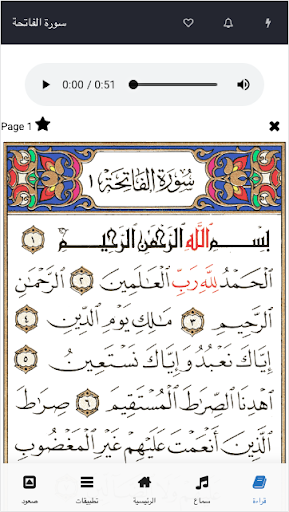 سورة الفاتحة
0:00 / 0:51
Page 1
سُورَةُ الفَاتِحَةِ ١
بِسْمِ اللَّهِ الرَّحْمَٰنِ الرَّحِيمِ ١
الْحَمْدُ لِلَّهِ رَبِّ الْعَالَمِينَ ٢ الرَّحْمَٰنِ
الرَّحِيمِ ٣ مَالِكِ يَوْمِ الدِّينِ ٤
إِيَّاكَ نَعْبُدُ وَإِيَّاكَ نَسْتَعِينُ ٥
اهْدِنَا الصِّرَاطَ الْمُسْتَقِيمَ ٦ صِرَاطَ
الَّذِينَ أَنْعَمْتَ عَلَيْهِمْ غَيْرِ الْمَغْضُوبِ
قراءة
سماع
الرئيسية
تطبيقات
صعود